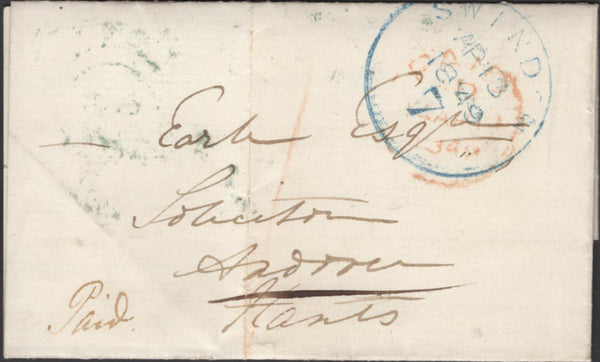 SWINDON
AP 13
1849
7
— Earle Esqre
Solicitor
Andover
Hants
Paid